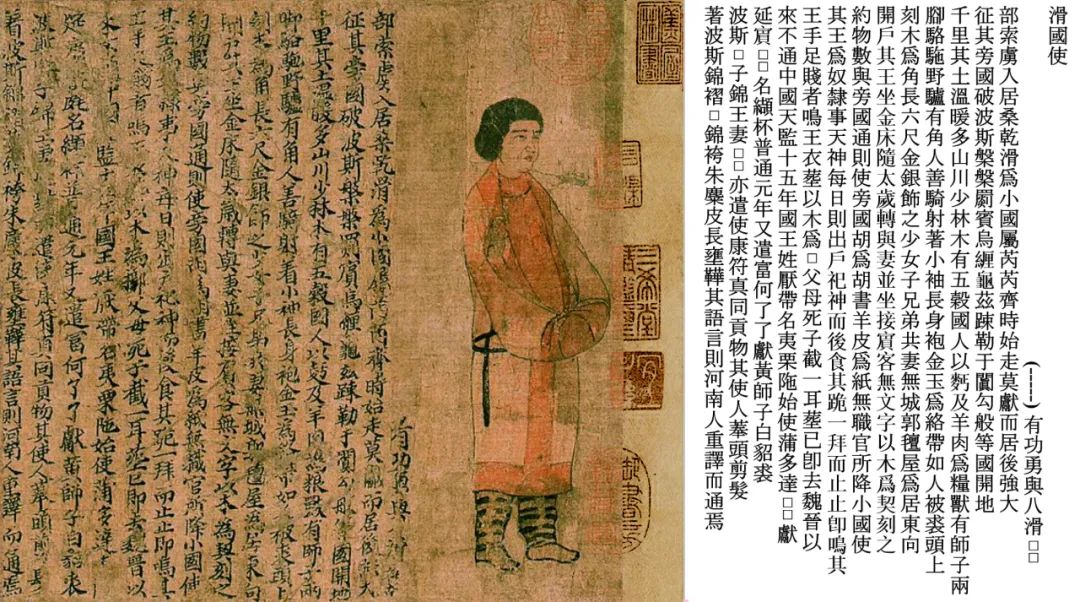 滑國使
(-----)有功勇與八滑□□
部索虜入居桑乾滑爲小國屬芮芮齊時始走莫獻而居後強大
征其旁國破波斯槃槃罽賓烏纏龜茲踈勒于闐勾般等國開地
千里其土溫暖多山川少林木有五穀國人以麨及羊肉爲糧獸有師子兩
腳駱駞野驢有角人善騎射著小袖長身袍金玉爲絡帶如人被裘頭上
刻木爲角長六尺金銀飾之少女子兄弟共妻無城郭氊屋爲居東向
開戶其王坐金床隨太歲轉與妻並坐接賓客無文字以木爲契刻之
約物數與旁國通則使旁國胡爲胡書羊皮爲紙無職官所降小國使
其王爲奴隸事天神每日則出戶祀神而後食其跪一拜而止止卽鳴其
王手足賤者鳴王衣塟以木爲□父母死子截一耳塟已卽去魏晉以
來不通中國天監十五年國王姓厭帶名夷栗陁始使蒲多達□□獻
延賓□□名纈杯普通元年又遣富何了了獻黃師子白貂裘
波斯□子錦王妻□□亦遣使康符真同貢物其使人莑頭剪髮
著波斯錦褶□錦袴朱麋皮長壅鞾其語言則河南人重譯而通焉
有功勇與
部索虜入居桑乾滑爲小國屬芮芮齊時始走莫獻而居後
征其旁國破波斯槃槃罽賓烏纏龜茲踈勒于闐勾般國開地
千里其土溫暖多山川少林木有五穀國人以麨及羊肉爲糧獸有師子兩
腳駱駞野驢有角人善騎射著小袖長身袍金玉爲絡帶如被裘頭上
刻木爲角長六尺金銀飾之少女子兄弟共妻無城郭氊屋爲居東向
坐金床隨太歲轉與妻並坐接賓客無文字以木爲契刻之
約物數與旁國通則使旁國胡爲胡書羊皮爲紙無職官所降小國使
其王爲奴隸事天神每日則出戶祀神而後食其跪一拜而止止即鳴其
王手足賤者鳴王以木爲父母死子截一耳塟已即去魏晉以
國王姓厭帶名夷栗陁始使蒲多達
名纈杯普通元年又遣富何了了獻黃師子白貂裘
波斯子錦王妻遣使康符真同貢物其使人莑頭剪
著波斯錦褶錦袴朱麋皮長壅鞾其語言則河南人重譯而通焉
三希堂